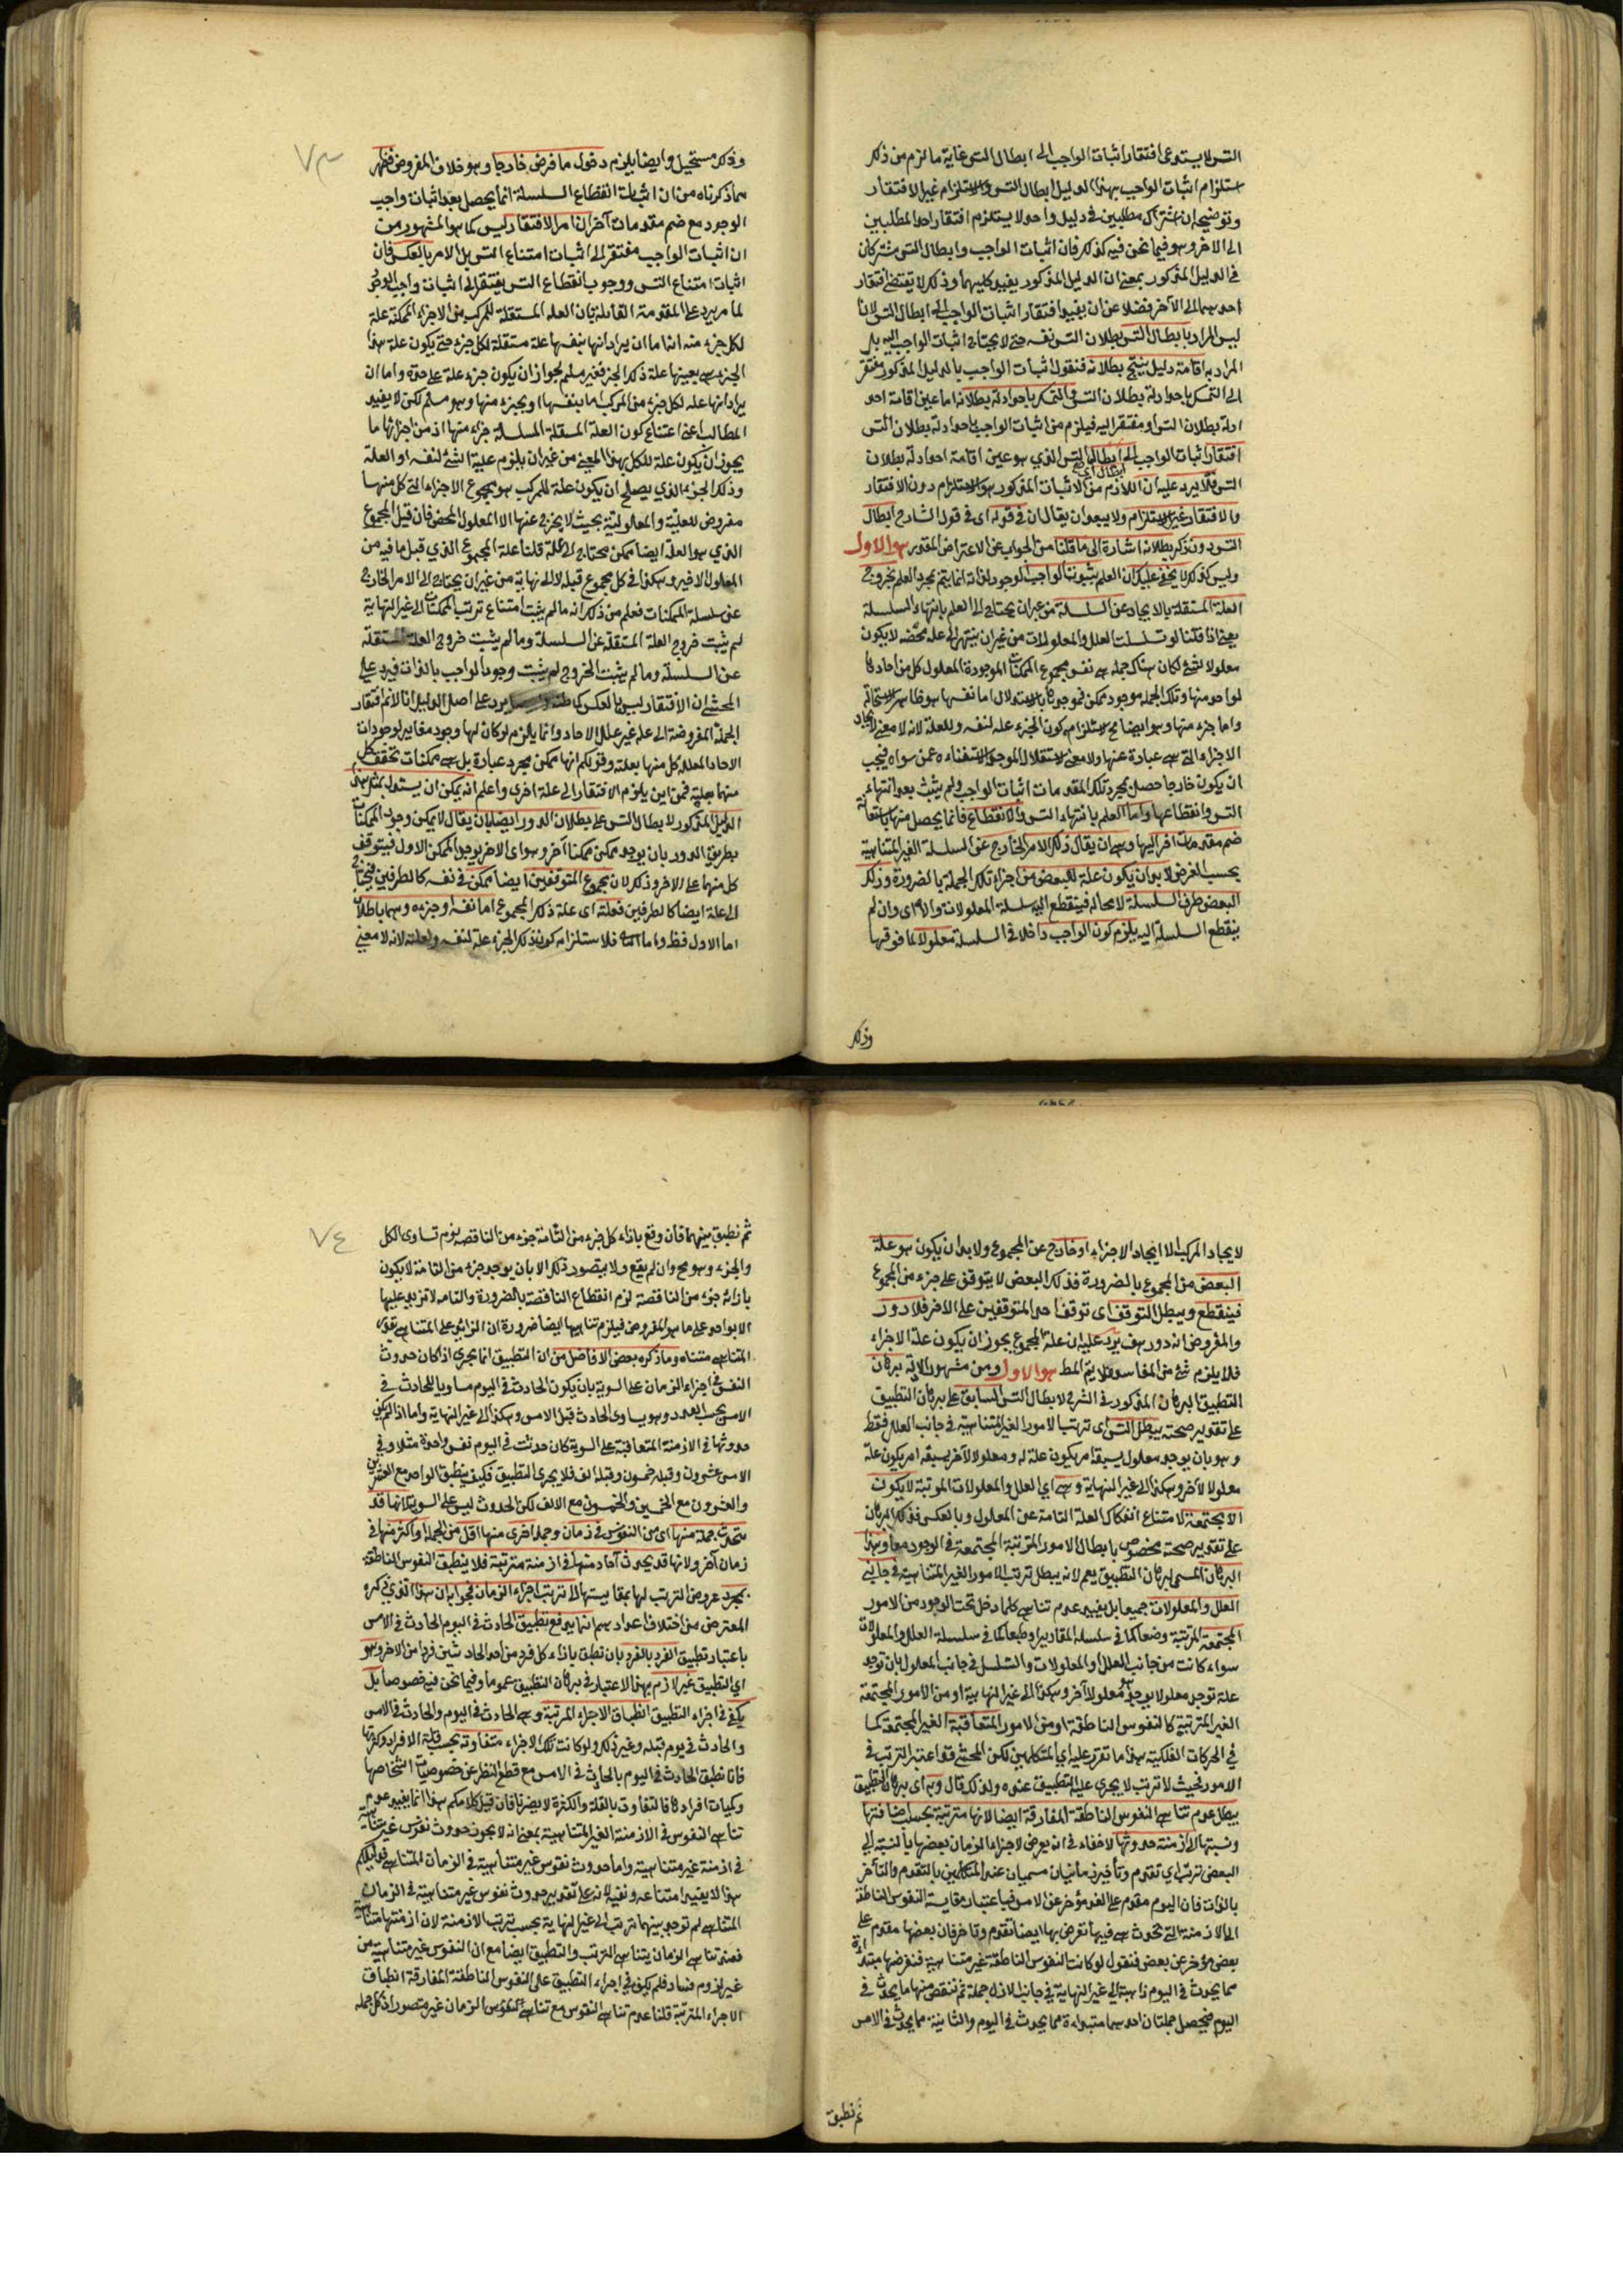 التس لا يستدعى افتقار اثبات الواجب الى ابطال التس غاية ما لزم من ذلك
استلزام اثبات الواجب بهذا الدليل ابطال التس والاستلزام غير الافتقار
وتوضيحه ان اشتراك مطلبين في دليل واحد لا يستلزم افتقار احد المطلبين
الى الاخر وهو فيما نحن فيه كذلك فان اثبات الواجب وابطال التس مشتركان
في الدليل المذكور بمعنى ان الدليل المذكور يفيد كليهما وذلك لا يقتضى افتقار
احدهما الى الآخر فضلا عن ان يفيد افتقار اثبات الواجب الى ابطال التس لانا
ليس المراد بابطال التس بطلان التس نفسه حتى لا يحتاج اثبات الواجب اليه بل
المراد به اقامة دليل ينتج بطلانه فنقول اثبات الواجب بالدليل المذكور مفتقر
الى التمسك باحد ادلة بطلان التس والتمسك باحد ادلة بطلانه اما عين اقامة احد
ادلة بطلان التس او مفتقر اليه فيلزم من اثبات الواجب باحد ادلة بطلان التس
افتقار اثبات الواجب الى ابطال التس الذي هو عين اقامة احد ادلة بطلان
التس فلا يرد عليه ان اللازم من الاثبات المذكور هو الاستلزام دون الافتقار
والافتقار غير الاستلزام ولا يبعد ان يقال ان في قوله اى في قول الشارح ابطال
التس دون ذكر بطلانه اشارة الى ما قلنا من الجواب عن الاعتراض المقدر هو الاول
وليس كذلك لا يخفى عليك ان العلم بثبوت الواجب الوجود لذاته انما يتم بمجرد العلم بخروج
العلة المستقلة بالايجاد عن السلسلة من غير ان يحتاج الى العلم بانتهاء السلسلة
يعنى اذا قلنا لو تسلسلت العلل والمعلولات من غير ان ينتهى الى علة محضة لا يكون
معلولا لشئ لكان هناك جملة هى نفس مجموع الممكنات الموجودة المعلول كل من احادها
لواحد منها وتلك الجملة موجود ممكن فموجدها بالاستقلال اما نفسها هو ظاهر الاستحالة
واما جزء منها وهو ايضا مح لاستلزامه كون الجزء علة لنفسه ولعلله لانه لا معنى لايجاد
الاجزاء التى هى عبارة عنها ولا معنى لاستقلال الموجد الا استغناءه عمن سواه فيجب
ان يكون خارجا حصل بمجرد تلك المقدمات اثبات الواجب ولم يثبت بعد انتهاء
التس وانقطاعها واما العلم بانتهاء التس والانقطاع فانما يحصل منها باستعانة
ضم مقدمات اخر اليها وهى ان يقال ذلك الامر الخارج عن السلسلة الغير المتناهية
بحسب الفرض لابد ان يكون علة للبعض من اجزاء تلك الجملة بالضرورة وذلك
البعض طرف السلسلة لا محالة فينقطع اليه سلسلة المعلولات والا اى وان لم
ينقطع السلسلة اليه يلزم كون الواجب داخلا في السلسلة معلولا لما فوقها
وذلك
٧٣
وذلك مستحيل وايضا يلزم دخول ما فرض خارجا وهو خلاف المفروض فظهر
مما ذكرناه من ان اثبات انقطاع السلسلة انما يحصل بعد اثبات واجب
الوجود مع ضم مقدمات آخر ان امر الافتقار ليس كما هو المشهور من
ان اثبات الواجب مفتقر الى اثبات امتناع التس بل الامر بالعكس فان
اثبات امتناع التس ووجوب انقطاع التس يفتقر الى اثبات واجب الوجود
لما مر يرد على المقدمة القائلة بان العلة المستقلة للمركب من الاجزاء الممكنة علة
لكل جزء منه انه اما ان يراد انها بنفسها علة مستقلة لكل جزء حتى يكون علة هذا
الجزء هى بعينها علة ذلك الجزء فغير مسلم لجواز ان يكون جزء علة على حدة واما ان
يراد انها علة لكل جزء من المركب اما بنفسها او بجزء منها وهو مسلم لكن لا يفيد
المطالب اعنى امتناع كون العلة المستقلة للسلسلة جزء منها اذ من اجزائها ما
يجوز ان يكون علة للكل بهذا المعنى من غير ان يلزم علية الشئ لنفسه او العلة
وذلك الجزء الذي يصلح ان يكون علة للمركب هو مجموع الاجزاء التى كل منها
معروض للعلية والمعلولية بحيث لا يخرج عنها الا المعلول المحض فان قيل المجموع
الذي هو العلة ايضا ممكن محتاج الى علة قلنا علة المجموع الذي قبل ما فيه من
المعلول الاخير وهكذا في كل مجموع قبله لا الى نهاية من غير ان يحتاج الى الامر الخارج
عن سلسلة الممكنات فعلم من ذلك انه ما لم يثبت امتناع ترتب الممكنات الى غير النهاية
لم يثبت خروج العلة المستقلة عن السلسلة وما لم يثبت خروج العلة المستقلة
عن السلسلة وما لم يثبت الخروج لم يثبت وجود الواجب بالذات فيرد على
المحشى ان الافتقار ليس بالعكس كما ظنه يرد على اصل الدليل انا لانم افتقار
الجملة المفروضة الى علة غير علل الاحاد وانما يلزم لو كان لها وجود مغاير لوجودات
الاحاد المعللة كل منها بعلته وقولكم انها ممكن مجرد عبارة بل هى ممكنات تحقق كل
منها بعلته فمن اين يلزم الافتقار الى علة اخرى واعلم انه يمكن ان يستدل بمثل هذا
الدليل المذكور لابطال التس على بطلان الدور ايضا بان يقال لا يمكن وجود الممكنات
بطريق الدور بان يوجد ممكن ممكنا آخر وهو اى الاخر يوجد الممكن الاول فيتوقف
كل منهما على الاخر وذلك لان مجموع المتوقفين ايضا ممكن في نفسه كالطرفين فيحتاج
الى علة ايضا كالطرفين فعلته اى علة ذلك المجموع اما نفسه او جزءه وهما باطلان
اما الاول فظ واما الثانى فلاستلزامه كون ذلك الجزء علة لنفسه ولعلته لانه لا معنى
لايجاد المركب الا ايجاد الاجزاء او خارج عن المجموع ولابد ان يكون هو علة
البعض من المجموع بالضرورة فذلك البعض لا يتوقف على جزء من المجموع
فينقطع ويبطل التوقف اى توقف احد المتوقفين على الاخر فلا دور
والمفروض انه دور هف يرد عليه ان علة المجموع يجوز ان يكون علة الاجزاء
فلا يلزم شئ من المفاسد فلا يتم المط هو الاول ومن مشهور الادلة برهان
التطبيق البرهان المذكور في الشرح لابطال التس السابق على برهان التطبيق
على تقدير صحته يبطل التس اى ترتب الامور الغير المتناهية في جانب العلل فقط
وهو بان يوجد معلول يسبقه امر يكون علة له ومعلولا لآخر يسبقه امر يكون علة
معلولا لآخر وهكذا الى غير النهاية وهى اي العلل والمعلولات المرتبة لا يكون
الا مجتمعة لامتناع انفكاك العلة التامة عن المعلول وبالعكس فذلك البرهان
على تقدير صحته مخصوص بابطال الامور المترتبة المجتمعة في الوجود معا وهذا
البرهان المسمى ببرهان التطبيق يعم لانه يبطل ترتب الامور الغير المتناهية في جانبى
العلل والمعلولات جميعا بل يفيد عدم تناهى كلما دخل تحت الوجود من الامور
المجتمعة المرتبة وضعا كما في سلسلة المقادير او طبعا كما في سلسلة العلل والمعلولات
سواء كانت من جانب العلل او المعلولات والتسلسل في جانب المعلول بان توجد
علة توجد معلولا يوجد معلولا آخر وهكذا الى غير النهاية او من الامور المجتمعة
الغير المترتبة كالنفوس الناطقة او من الامور المتعاقبة الغير المجتمعة كما
في الحركات الفلكية هذا ما تقرر عليه اي المتكلمين لكن المحشى قد اعتبر الترتب في
الامور فحيث لا ترتب لا يجرى عليه التطبيق عنده ولذلك قال وبه اى برهان التطبيق
يبطل عدم تناهى النفوس الناطقة المفارقة ايضا لانها مترتبة بحسب اضافتها
ونسبتها الى ازمنة حدوثها لا خفاء في انه يعرض لاجزاء الزمان بعضها بالنسبة الى
البعض ترتب اي تقدم وتأخير زمانيان مسميان عند المتكلمين بالتقدم والتأخر
بالذات فان اليوم مقدم على الغد مؤخر عن الامس فباعتبار مقايسة النفوس الناطقة
الى الازمنة التى تحدث هى فيها تعرض بها ايضا تقدم وتاخر فان بعضها مقدم على
بعض مؤخر عن بعض فنقول لو كانت النفوس الناطقة غير متناهية فنفرضها مبتدأة
مما يحدث في اليوم ذاهبة الى غير النهاية في جانب الازل جملة ثم ننقص منها ما يحدث في
اليوم فيحصل جملتان احدهما مبتدأة مما يحدث في اليوم والثانية مما يحدث في الامس
ثم نطبق
٧٤
ثم نطبق بينهما فان وقع بازاء كل جزء من التامة جزء من الناقصة لزم تساوى الكل
والجزء وهو مح وان لم يقع ولا يتصور ذلك الا بان يوجد جزء من التامة لا يكون
بازائه جزء من الناقصة لزم انقطاع الناقصة بالضرورة والتامة لا تزيد عليها
الا بواحد على ما هو المفروض فيلزم تناهيها ايضا ضرورة ان الزائد على المتناهى بقدر
المتناهى متناه وما ذكره بعض الافاضل من ان التطبيق انما يجرى اذا كان حدوث
النفس في اجزاء الزمان على السوية بان يكون الحادث في اليوم مساويا للحادث في
الامس بحسب العدد وهو يساوى الحادث قبل الامس وهكذا الى غير النهاية واما اذا لم يكن
حدوثها في الازمنة المتعاقبة على السوية كان حدثت في اليوم نفس واحدة مثلا وفي
الامس عشرون وقبله خمسون وقبله الف فلا يجرى التطبيق فكيف ينطبق الواحد مع العشرين
والعشرون مع الخمسين والخمسون مع الالف لكن الحدوث ليس على السوية لانها قد
يحدث جملة منها اى من النفوس في زمان وجملة اخرى منها اقل من الجملة او اكثر منها في
زمان آخر ولانها قد يحدث آحاد منها في ازمنة مترتبة فلا ينطبق النفوس الناطقة
بمجرد عروض الترتب لها بمقايستها الى ترتب اجزاء الزمان فجوابه ان هذا الذي ذكره
المعترض من اختلاف اعدادهم انما يدفع تطبيق الحادث في اليوم الحادث في الامس
باعتبار تطبيق الفرد بالفرد بان نطبق بازاء كل فرد من احد الحادثين فردا من الاخر وهو
اي التطبيق غير لازم بهذا الاعتبار في برهان التطبيق عموما وفيما نحن فيه خصوصا بل
يكفى في اجراء التطبيق انطباق الاجزاء المرتبة وهى الحادث في اليوم والحادث في الامس
والحادث في يوم قبله وغير ذلك ولو كانت تلك الاجزاء متفاوتة بحسب قلة الافراد وكثرتها
فانا نطبق الحادث في اليوم بالحادث في الامس مع قطع النظر عن خصوصيات اشخاصها
وكميات افرادها فالتفاوت بالقلة والكثرة لا يضرنا فان قيل كلامكم هذا انما يفيد عدم
تناهى النفوس في الازمنة الغير المتناهية بمعنى انه لا يجوز حدوث نفوس غير متناهية
في ازمنة غير متناهية واما حدوث نفوس غير متناهية في الزمان المتناهى فدليلكم
هذا لا يفيد امتناعه ونفيه لانه على تقدير حدوث نفوس غير متناهية في الزمان
المتناهى لم توجد بينهما ترتب الى غير النهاية بحسب ترتب الازمنة لان ازمنتها متناهية
فعند تناهى الزمان يتناهى الترتب والتطبيق ايضا مع ان النفوس غير متناهية من
غير لزوم فساد فلم يكف في اجراء التطبيق على النفوس الناطقة المفارقة انطباق
الاجزاء المترتبة قلنا عدم تناهى النفوس مع تناهى الزمان غير متصور اذ كل جملة